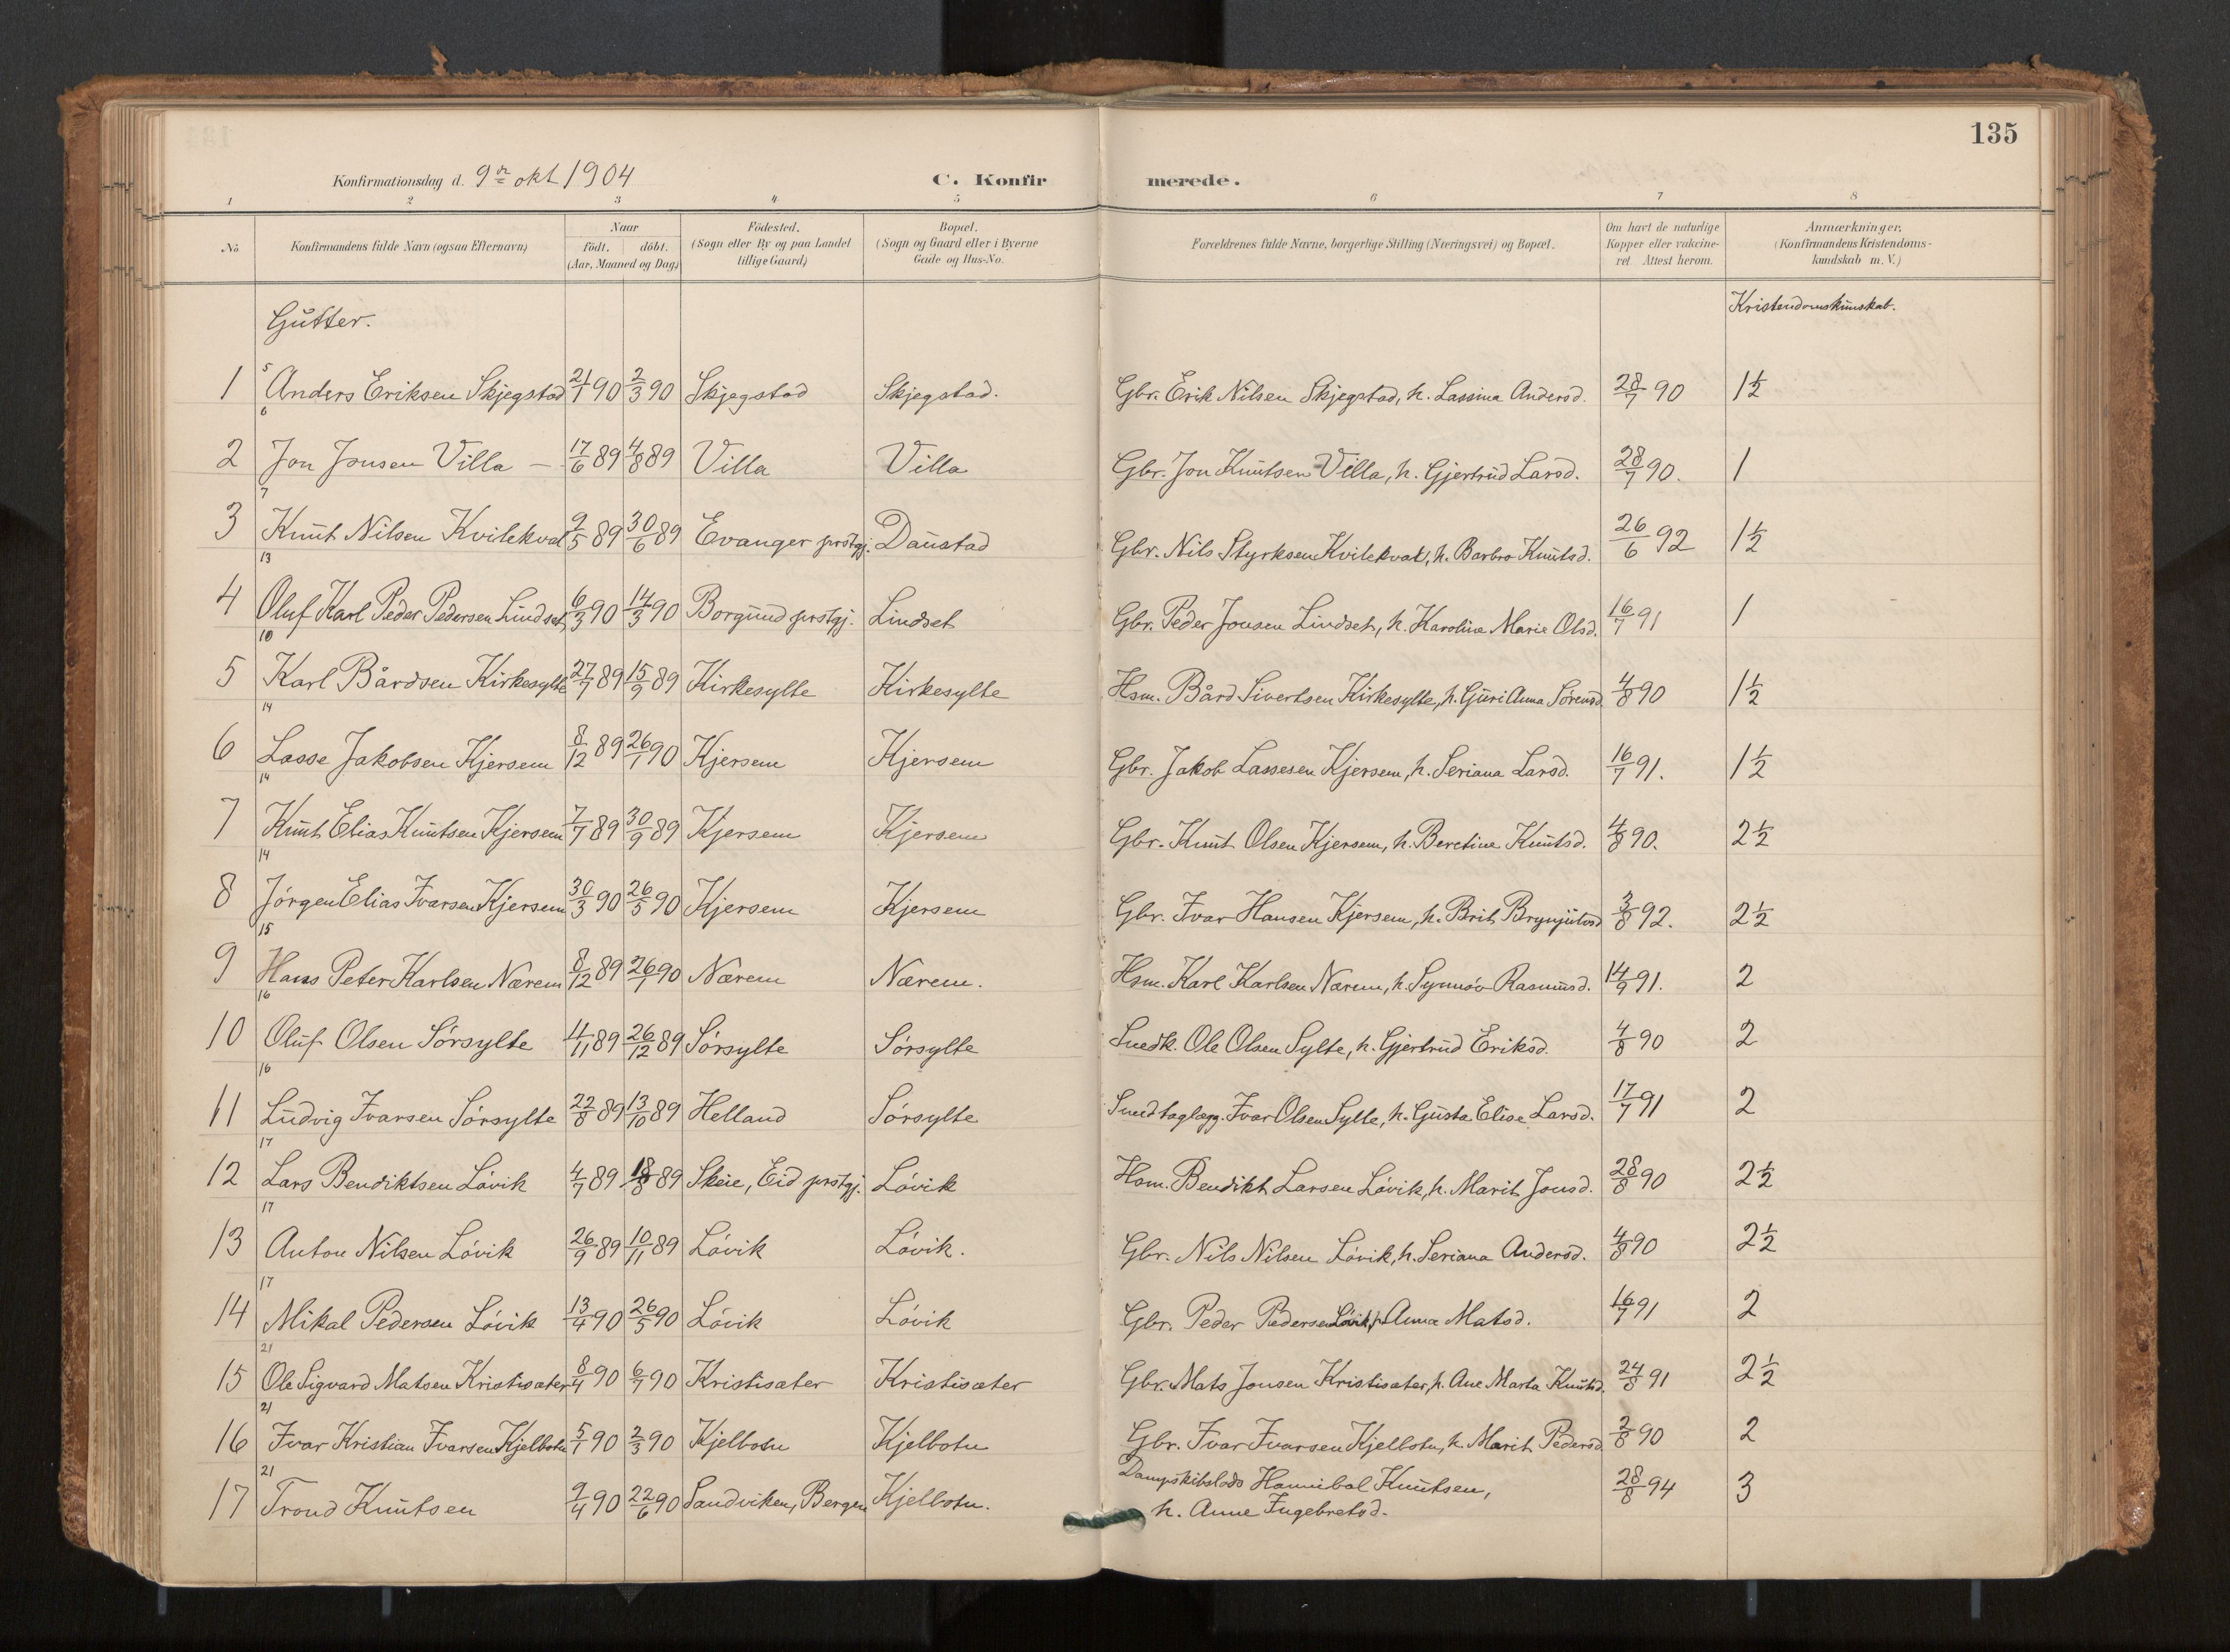 135
Konfirmationsdag d. 9de okt 1904 C. Konfirmerede.
1 2 3 4 5 6 7 8
No. Konfirmandens fulde Navn (ogsaa Efternavn) Naar födt. döbt. (Aar, Maaned og Dag) Födested. (Sogn eller By og paa Landet tillige Gaard) Bopæl. (Sogn og Gaard eller i Byerne Gade og Hus-No. Forældrenes fulde Navne, borgerlige Stilling (Næringsvei) og Bopæl. Om havt de naturlige Kopper eller vakcineret. Attest herom. Anmærkninger, (Konfirmandens Kristendomskundskab m. V.)
Gutter. Kristendomskunskab.
5
1 Anders Eriksen Skjegstad 21/1 90 2/3 90 Skjegstad Skjegstad. Gbr. Erik Nilsen Skjegstad, h. Lassina Andersd. 28/7 90 1 1/2
6
2 Jon Jonsen Villa – 17/6 89 4/8 89 Villa Villa Gbr. Jon Knutsen Villa, h. Gjertrud Larsd. 28/7 90. 1
7
3 Knut Nilsen Kvilekval 9/5 89 30/6 89 Evanger prstgj. Daustad Gbr. Nils Styrksen Kvilekval, h. Barbro Knutsd. 26/6 92 1 1/2
13
4 Oluf Karl Peder Pedersen Lindset 6/3 90 14/3 90 Borgund prstgj. Lindset Gbr. Peder Jonsen Lindset, h. Karoline Marie Olsd. 16/7 91 1
10
5 Karl Bårdsen Kirkesylte 27/7 89 15/9 89 Kirkesylte Kirkesylte Hsm. Bård Sivertsen Kirkesylte, h. Guri Anna Sørensd. 4/8 90 1 1/2
14
6 Lasse Jakobsen Kjersem 8/12 89 26/1 90 Kjersem Kjersem Gbr. Jakob Lassesen Kjersem, h. Seriana Larsd. 16/7 91. 1 1/2
14
7 Knut Elias Knutsen Kjersem 7/7 89 30/9 89 Kjersem Kjersem Gbr. Knut Olsen Kjersem, h. Beretine Knutsd. 4/8 90. 2 1/2
14
8 Jörgen Elias Ivarsen Kjersem 30/3 90 26/5 90 Kjersem Kjersem Gbr. Ivar Hansen Kjersem, h. Brit Brynjulvsd 3/8 92. 2 1/2
15
9 Hans Peter Karlsen Nærem 8/12 89 26/1 90 Nærem Nærem. Hsm. Karl Karlsen Nærem, h. Synnöv Rasmusd. 14/9 91. 2
16
10 Oluf Olsen Sörsylte 4/11 89 26/12 89 Sörsylte Sörsylte Snedk. Ole Olsen Sylte, h. Gjertrud Eriksd. 4/8 90 2
16
11 Ludvig Ivarsen Sörsylte 22/8 89 13/10 89 Helland Sörsylte Ivar Olsen Sylte, h. Gusta Elise Larsd. 17/7 91 2
17
12 Lars Bendiktsen Lövik 4/7 89 18/8 89 Skeie, Eid prstgj. Lövik Hsm. Bendikt Larsen Lövik, h. Marit Jonsd. 28/8 90 2 1/2
17
13 Anton Nilsen Lövik 26/9 89 10/11 89 Lövik Lövik. Gbr. Nils Nilsen Lövik, h. Seriana Andersd. 4/8 90 2 1/2
17
14 Mikal Pedersen Lövik 13/4 90 26/5 90 Lövik Lövik Gbr. Peder Pedersen Lövik, h. Anna Matsd. 16/7 91 2
21
15 Ole Sigvard Matsen Kristisæter 8/4 90 6/7 90 Kristisæter Kristisæter Gbr. Mats Jonsen Kristisæter, h. Ane Marta Knutsd. 24/8 91 2 1/2
21
16 Ivar Kristian Ivarsen Kjelbotn 5/1 90 2/3 90 Kjelbotn Kjelbotn Gbr. Ivar Ivarsen Kjelbotn, h. Marit Pedersd 2/8 90 2
21
17 Trond Knutsen 9/4 90 22/6 90 Sandviken, Bergen Kjelbotn. Dampskibslods Hannibal Knutsen, 28/8 94 3
h. Anne Ingebretsd.